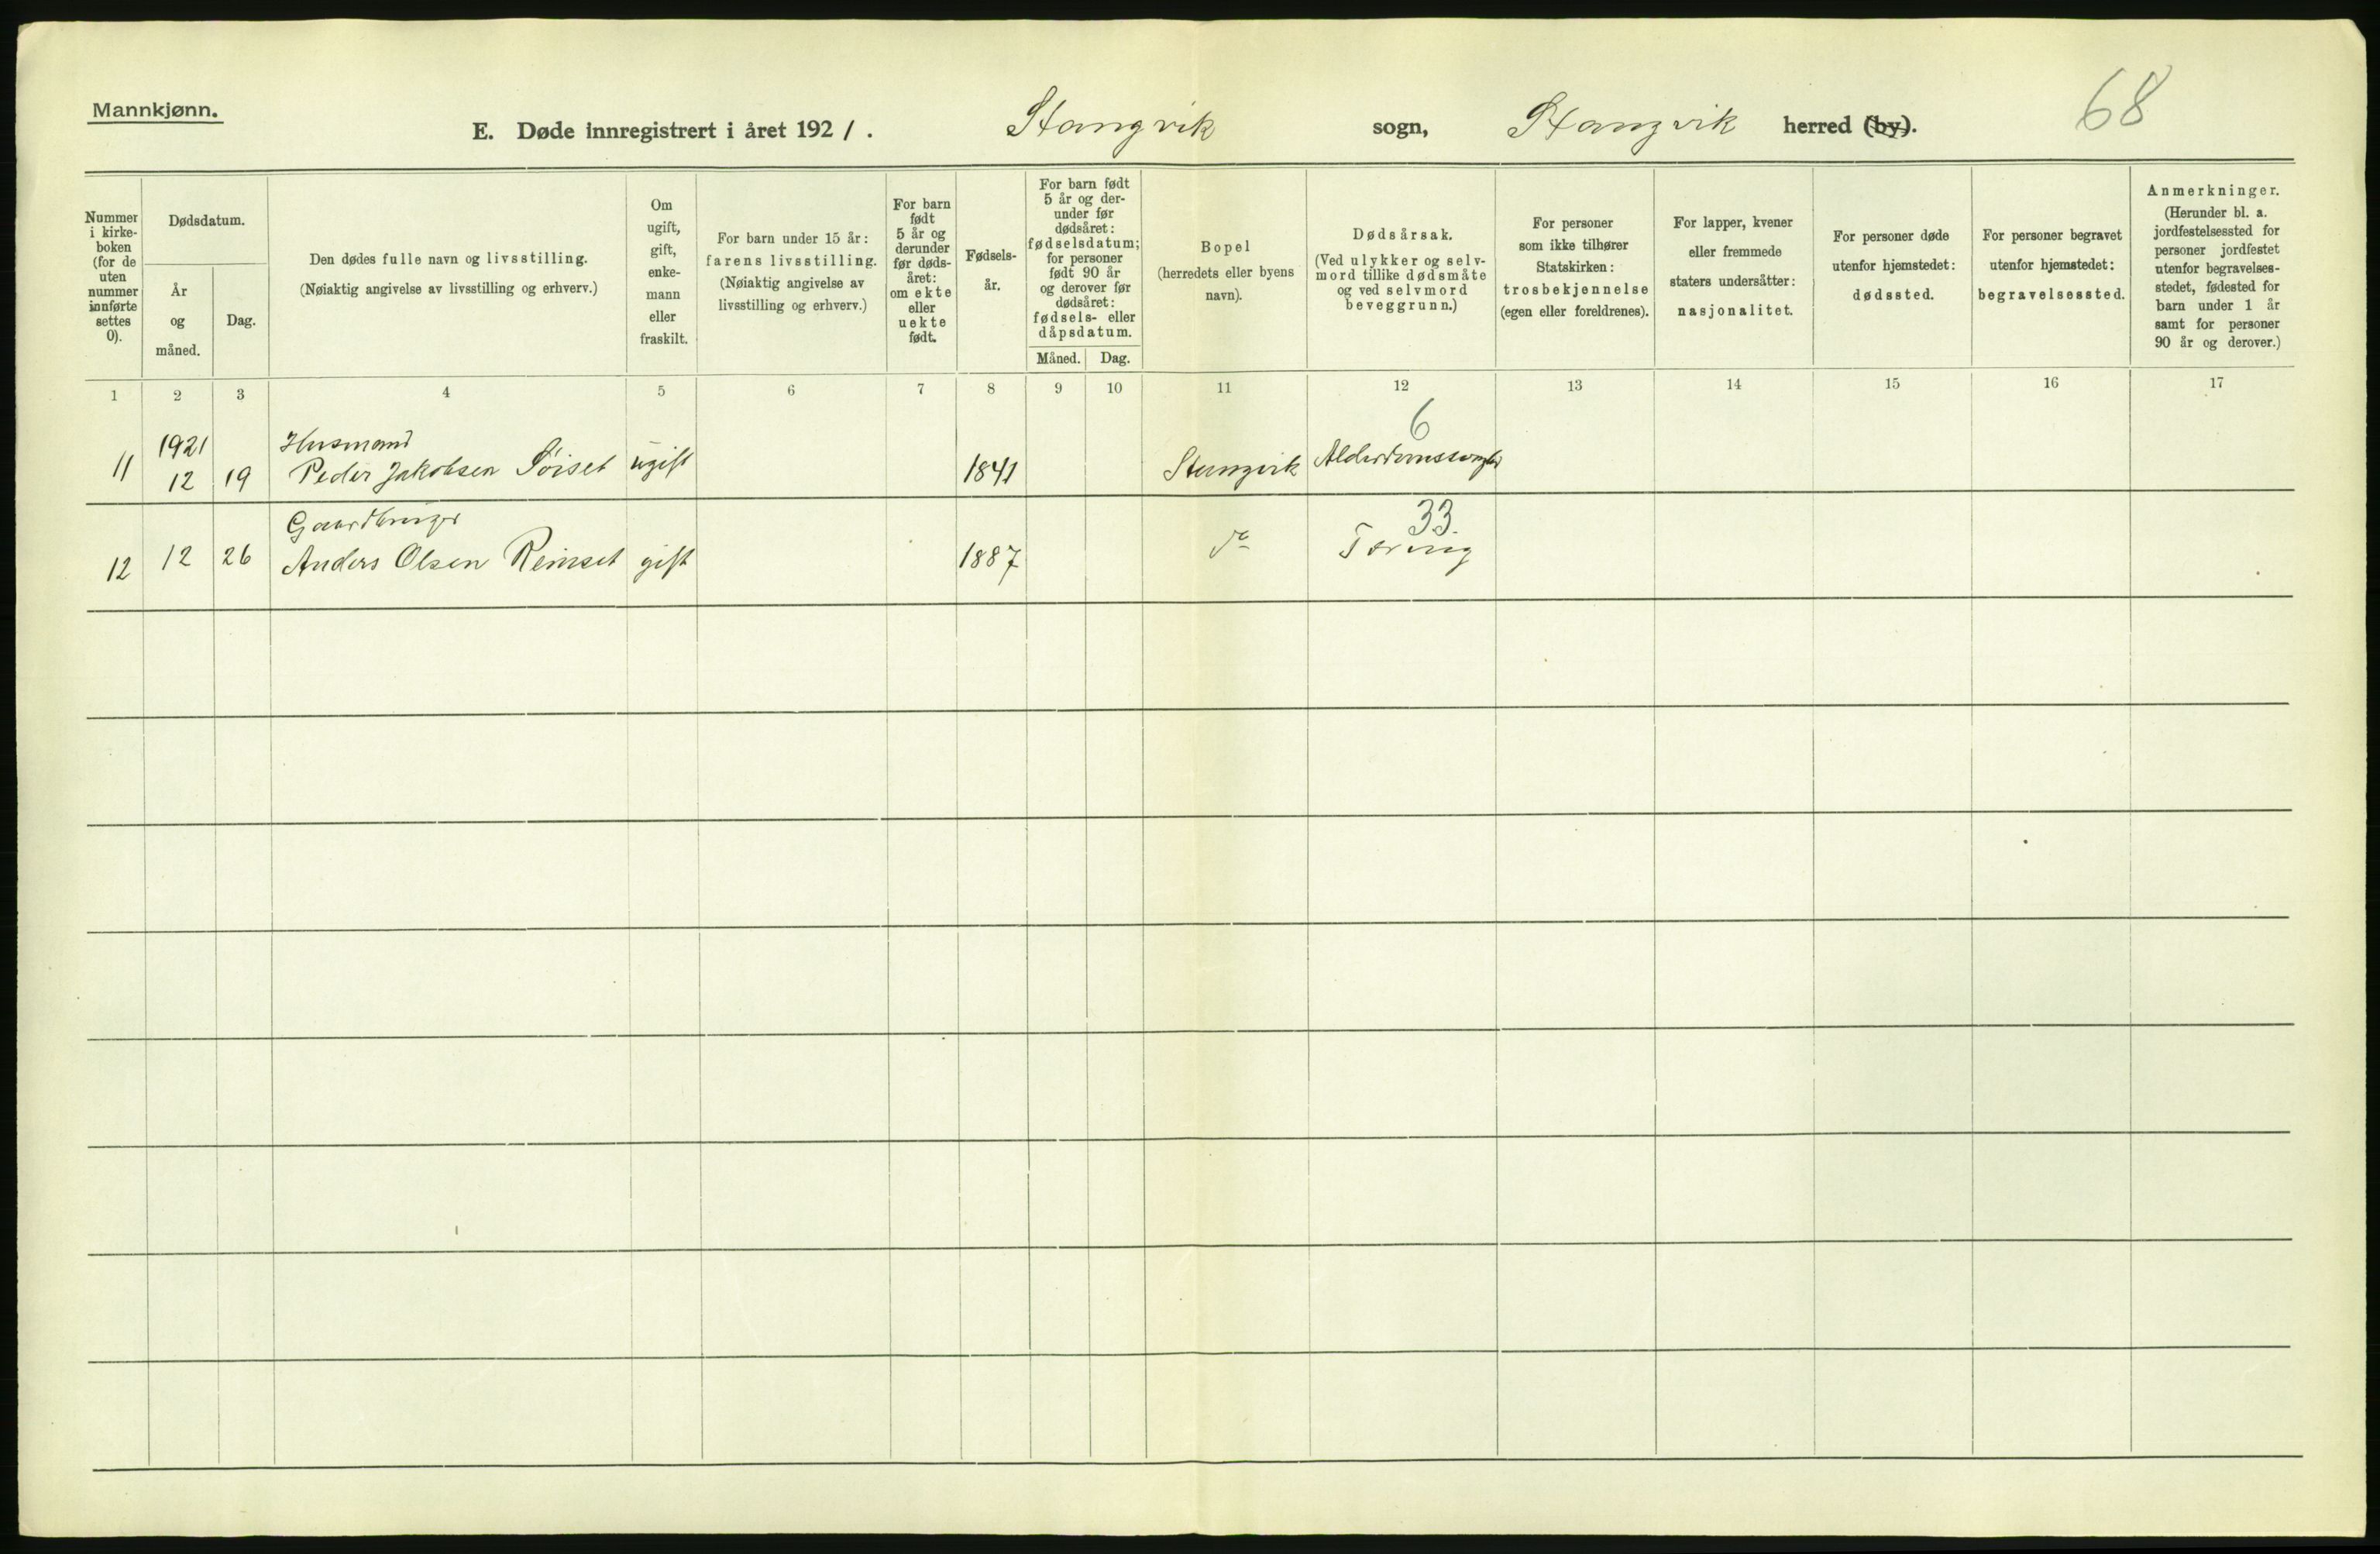 Mannkjønn.
E. Døde innregistrert i året 1921. Stangvik sogn, Stangvik herred (by).
68
Nummer i kirke-boken (for de uten nummer innførte settes 0).
Dødsdatum.
År og måned.
Dag.
Den dødes fulle navn og livsstilling.
(Nøiaktig angivelse av livsstilling og erhverv.)
Om ugift, gift, enke-mann eller fraskilt.
For barn under 15 år:
farens livsstilling.
(Nøiaktig angivelse av
livsstilling og erhverv.)
For barn født 5 år og derunder før døds-året: om ekte eller uekte født.
Fødsels-år.
For barn født 5 år og der-under før dødsåret: fødselsdatum; for personer født 90 år og derover før dødsåret: fødsels- eller dåpsdatum.
Måned. Dag.
Bopel
(herredets eller byens
navn).
Dødsårsak.
(Ved ulykker og selv-
mord tillike dødsmåte
og ved selvmord
beveggrunn.)
For personer
som ikke tilhører
Statskirken:
trosbekjennelse
(egen eller foreldrenes).
For lapper, kvener
eller fremmede
staters undersåtter:
nasjonalitet.
For personer døde
utenfor hjemstedet:
dødssted.
For personer begravet
utenfor hjemstedet:
begravelsessted.
Anmerkninger.
(Herunder bl. a.
jordfestelsessted for
personer jordfestet
utenfor begravelses-
stedet, fødested for
barn under 1 år
samt for personer
90 år og derover.)
1 2 3 4 5 6 7 8 9 10 11 12 13 14 15 16 17
1921 Husmand 6
11 12 19 Peder Jakobsen ugift 1841 Stangvik
Gaardbruger 33.
12 12 26 Anders Olsen Reinset gift 1887 do Tæring